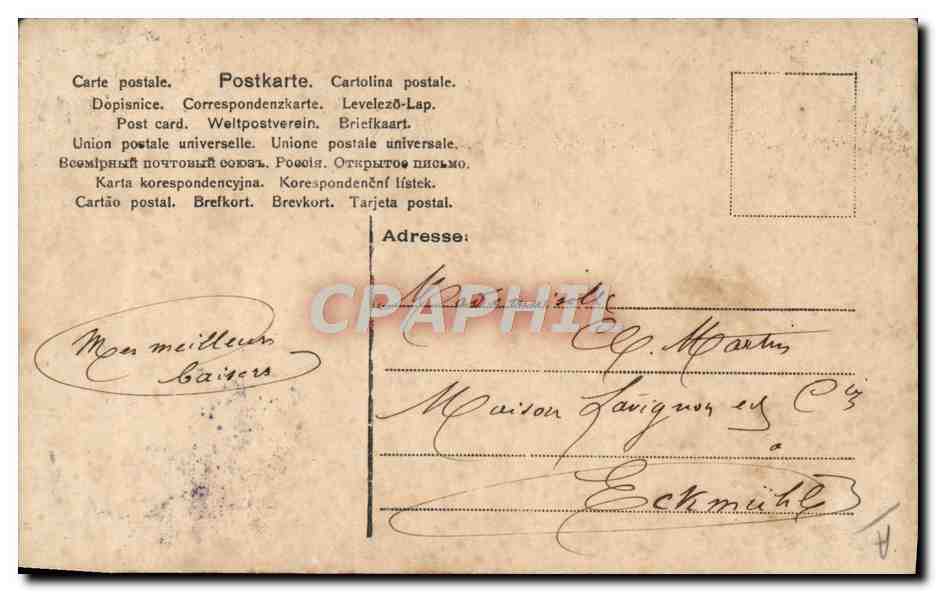 Carte postale. Postkarte. Cartolina postale.
Dopisnice. Correspondenzkarte. Levelező-Lap.
Post card. Weltpostverein. Briefkaart.
Union postale universelle. Unione postale universale.
Всемірный почтовый союзъ. Россія. Открытое письмо.
Karta korespondencyjna. Korespondenční lístek.
Cartão postal. Brefkort. Brevkort. Tarjeta postal.
Adresse:
Mademoiselle
CPAPHIL
Martin
Mes meilleurs
baisers
Maison Lavignon et Cie
à
Eckmühl
A